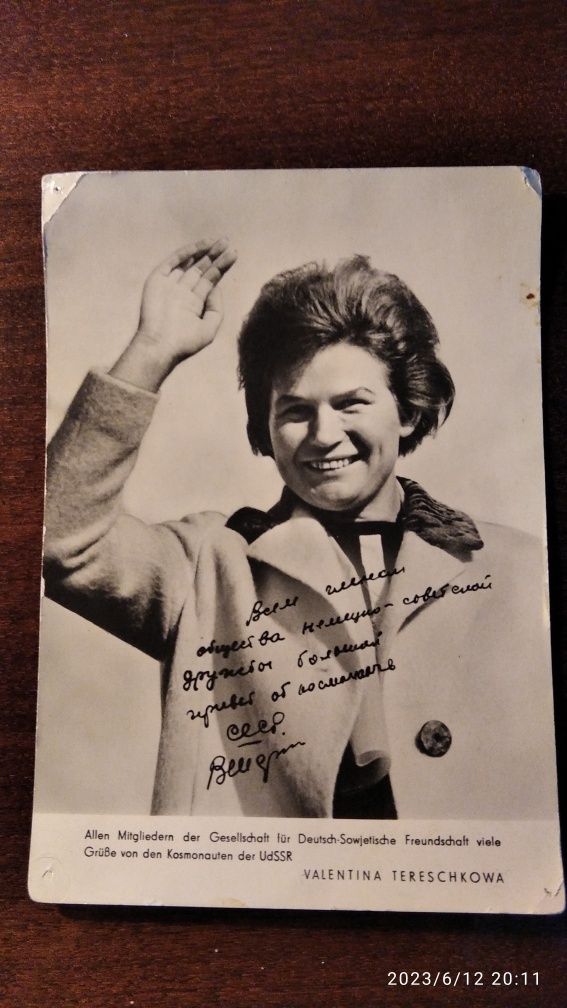 Всем членам
общества немецко-советской
дружбы большой
привет от космонавтов
СССР.
Allen Mitgliedern der Gesellschaft für Deutsch-Sowjetische Freundschaft viele
Grüße von den Kosmonauten der UdSSR
VALENTINA TERESCHKOWA
2023/6/12 20:11